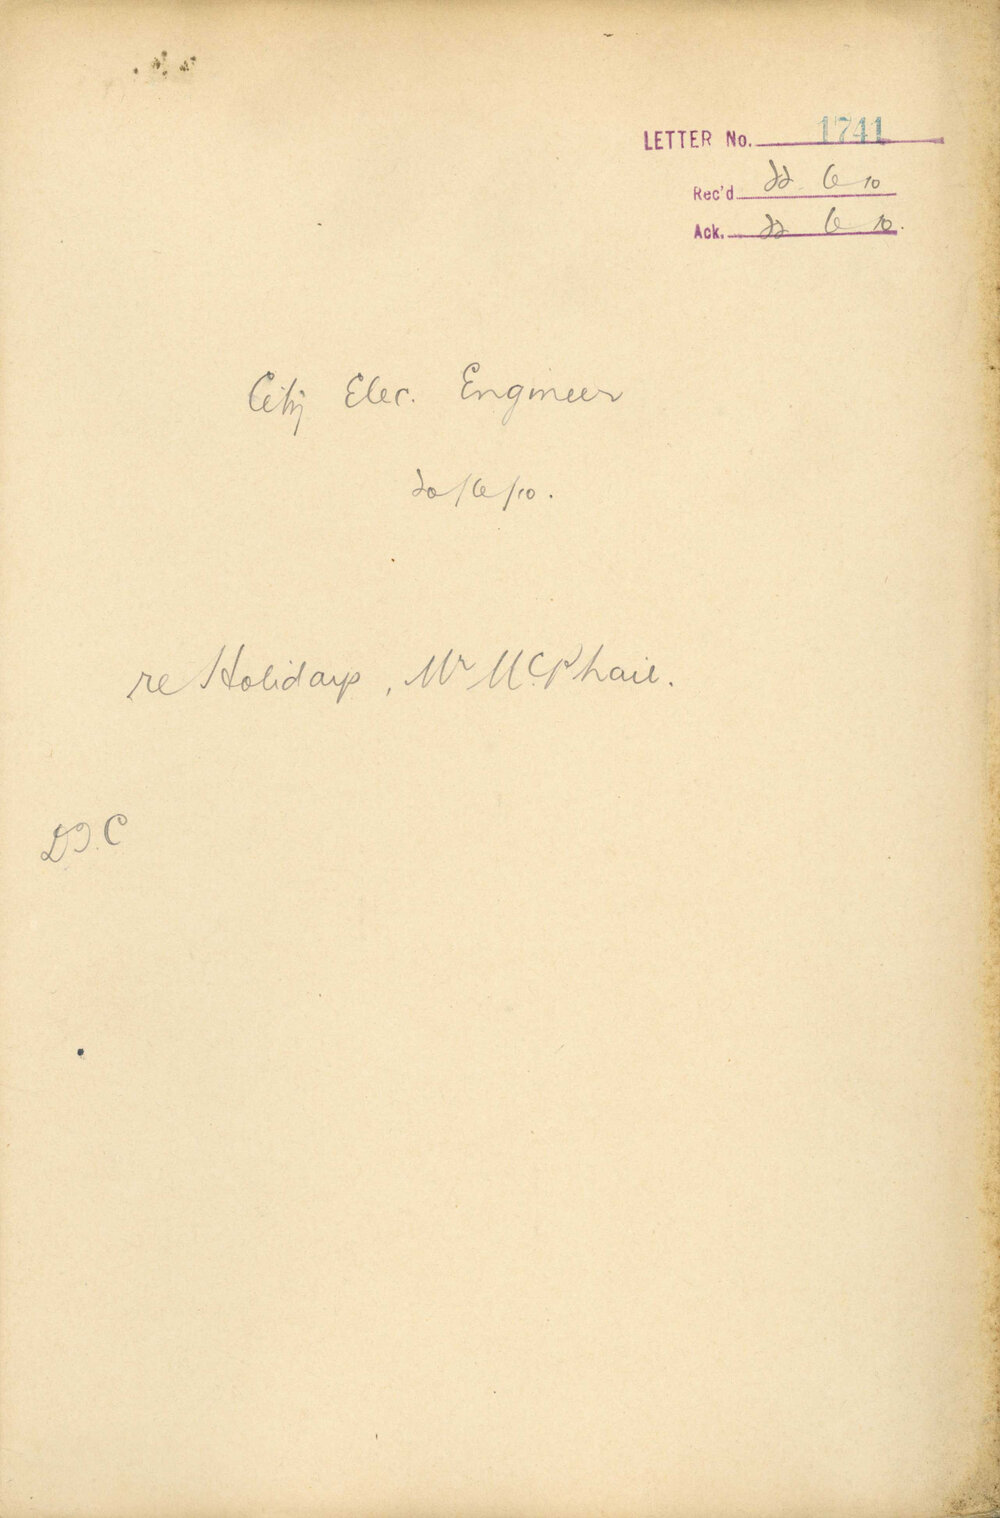 LETTER No. 1741
Rec'd 22 6 10
Ack. 22 6 10.
City Elec. Engineer
20/6/10.
re Holidays, Mr McPhail.
D.I.C